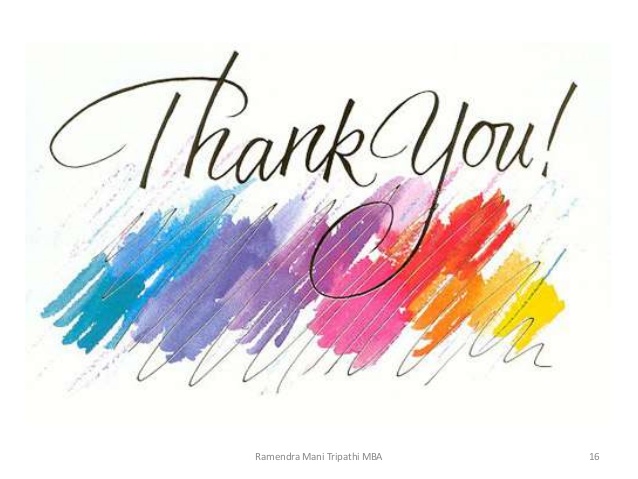 Thank You!
Ramendra Mani Tripathi MBA
16